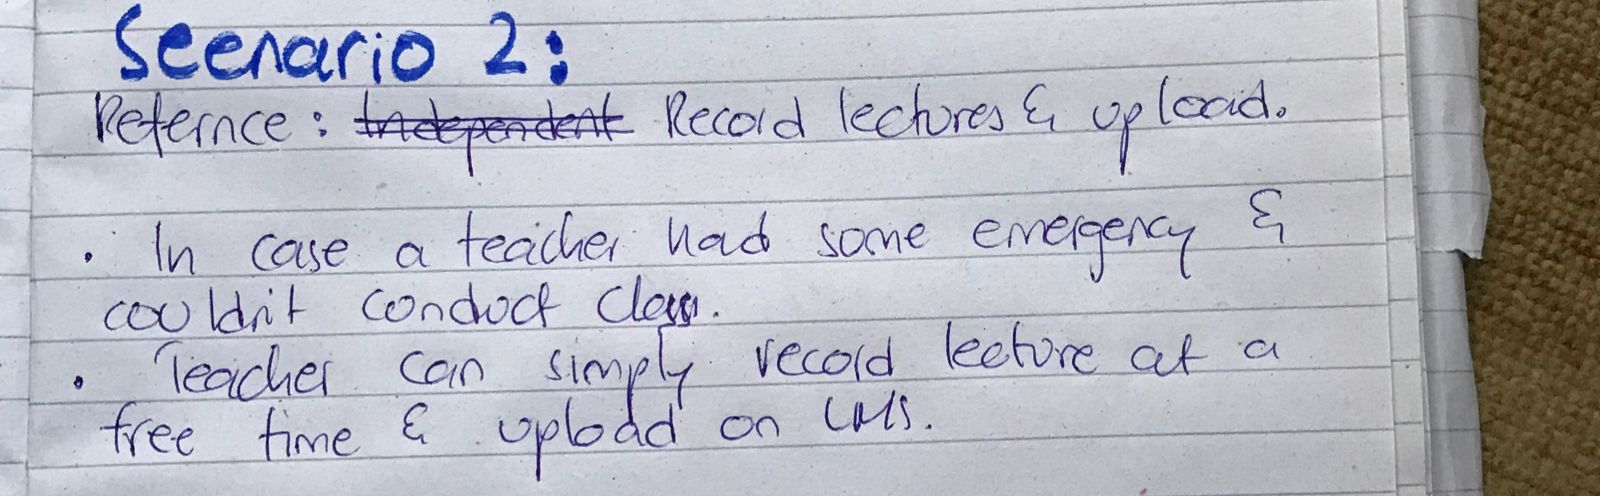 Scenario 2:
Refernce: Independent Record lectures & upload.
. In case a teacher had some emergency &
couldn't conduct class.
. Teacher can simply record lecture at a
free time & upload on LMS.